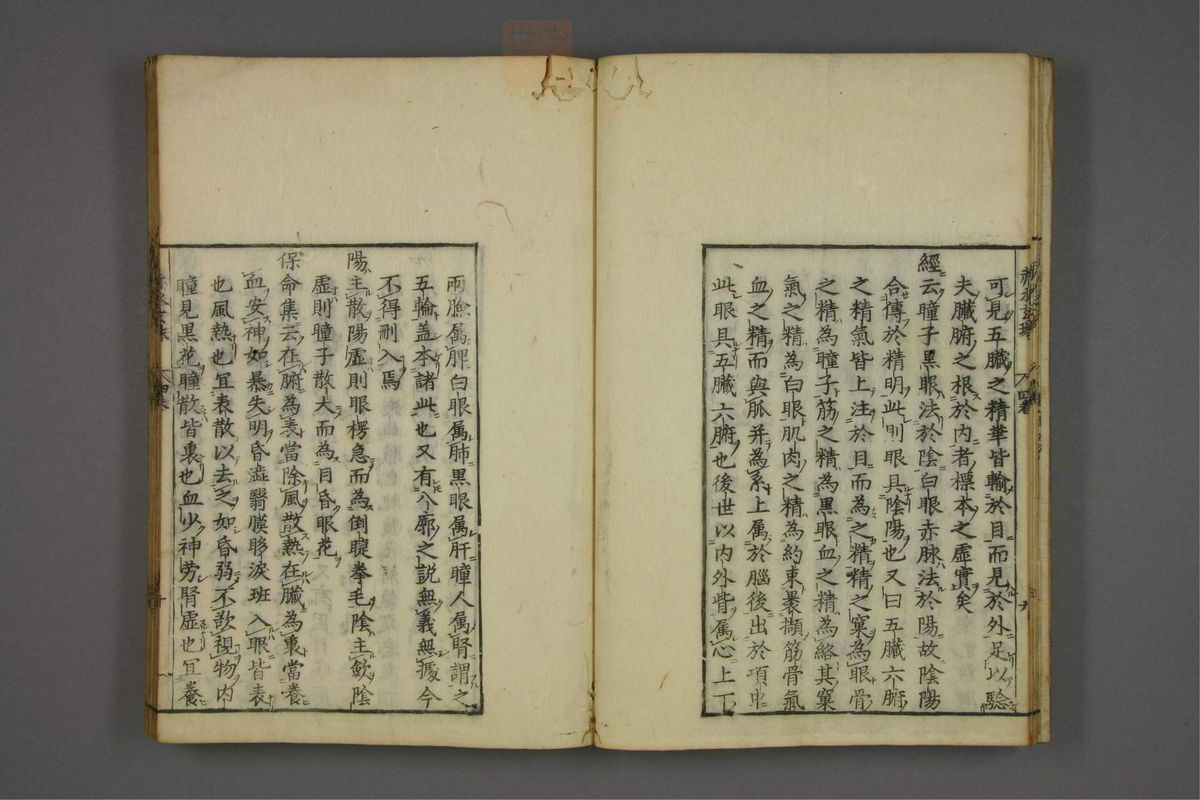 可見五臟之精華皆輸於目而見於外足以驗
夫臟腑之根於内者標本之虚實矣
經云瞳子黒眼法於陰白眼赤脉法於陽故陰陽
合傳於精明此則眼具陰陽也又曰五臟六腑
之精氣皆上注於目而為之精精之窠為眼骨
之精為瞳子筋之精為黒眼血之精為絡其窠
氣之精為白眼肌肉之精為約束褁擷筋骨氣
血之精而與脈并為系上属於腦後出於項中
此眼具五臟六腑也後世以内外眥属心上下
兩瞼属脾白眼属肺黒眼属肝瞳人属腎謂之
五輪盖本諸此也又有八廓之説無義無據今
不得刪入焉
陽主散陽虚則眼楞急而為倒睫拳毛陰主歛陰
虚則瞳子散大而為目昏眼花
保命集云在腑為表當除風散熱在臟為裏當養
血安神如暴失明昏澁翳膜眵淚班入眼皆表
也風熱也宜表散以去之如昏弱不欲視物内
瞳見黒花瞳散皆裏也血少神労腎虚也宜養